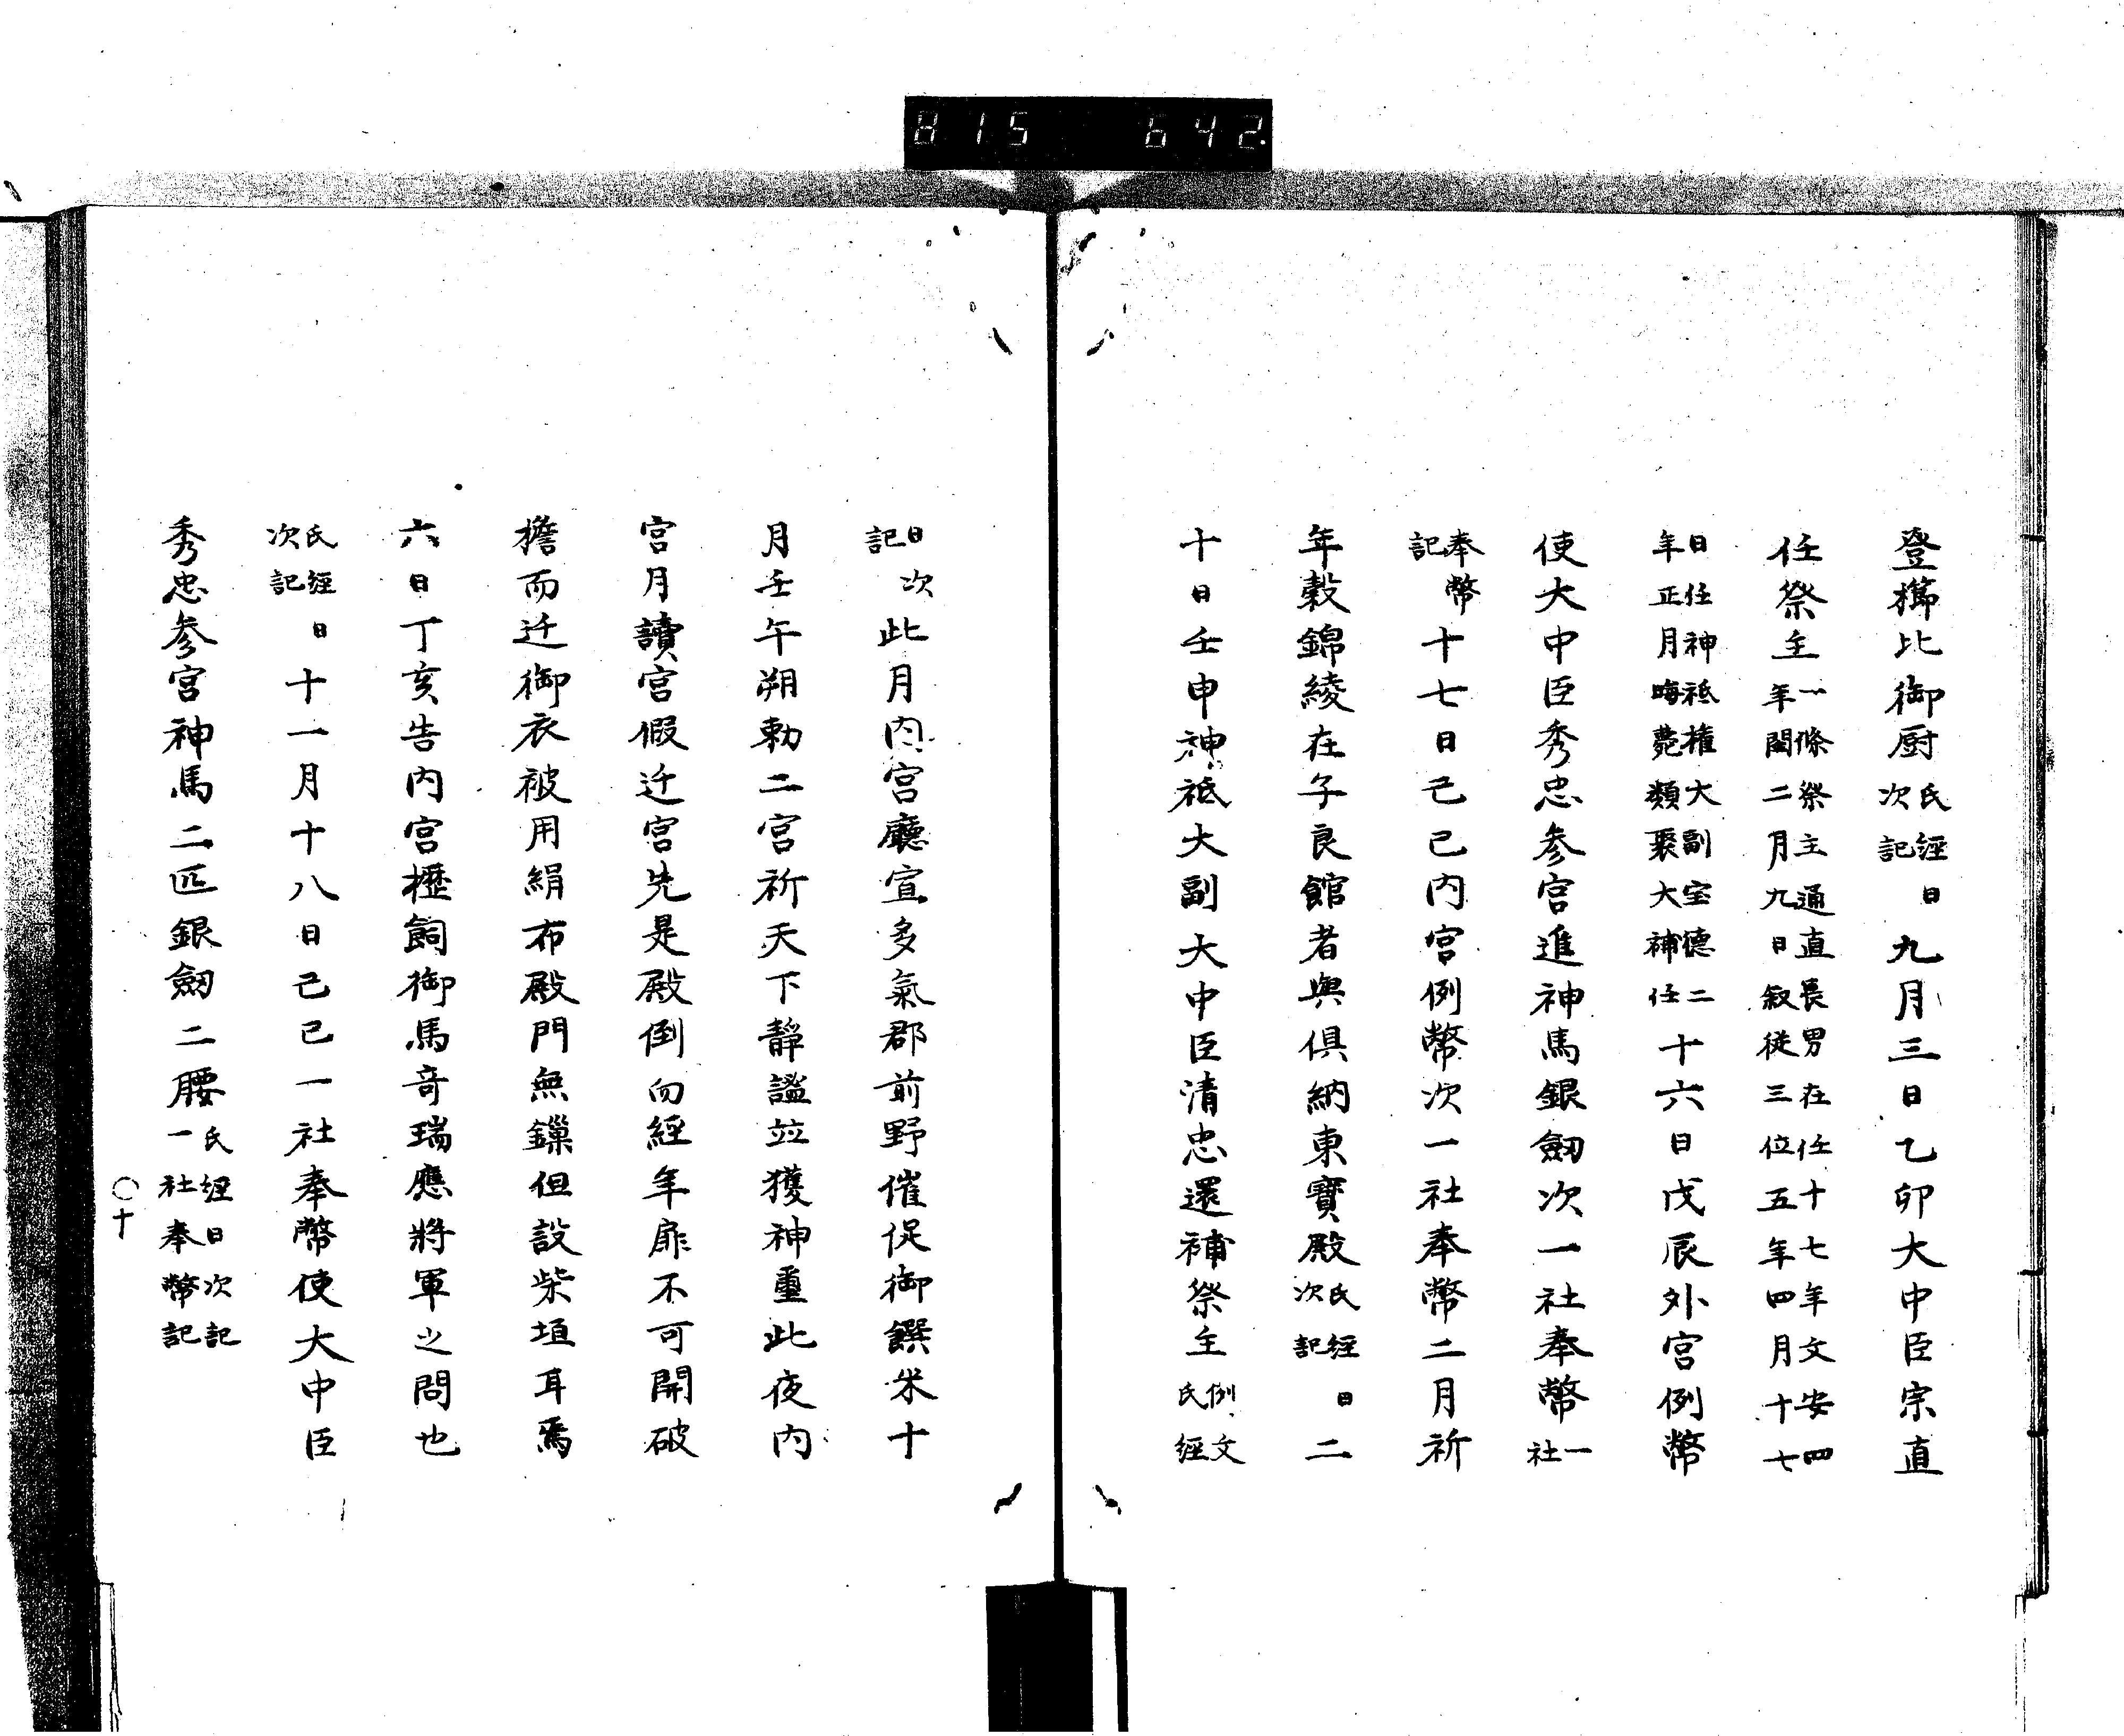 815 642
登櫛比御厨氏經日次記九月三日乙卯大中臣宗直
任祭主一條祭主通直長男在任十七年文安四年閏二月九日叙従三位五年四月十七
日任神祗權大副宝徳二年正月晦薨類聚大補任十六日戊辰外宮例幣
使大中臣秀忠参宮進神馬銀劒次一社奉幣一社
奉幣記十七日己巳内宮例幣次一社奉幣二月祈
年穀錦綾在子良館者與倶納東寶殿氏經日次記二
十日壬申神祗大副大中臣清忠還補祭主例文氏經
日次記此月内宮廳宣多氣郡前野催促御饌米十
月壬午朔勅二宮祈天下靜謐並獲神璽此夜内
宮月讀宮假迁宮先是殿倒而經年扉不可開破
擔而迁御衣被用絹布殿門無鏁但設柴垣耳焉
六日丁亥告内宮櫪飼御馬奇瑞應將軍之問也
氏經日次記十一月十八日己巳一社奉幣使大中臣
秀忠参宮神馬二匹銀劒二腰氏經日次記一社奉幣記
〇十